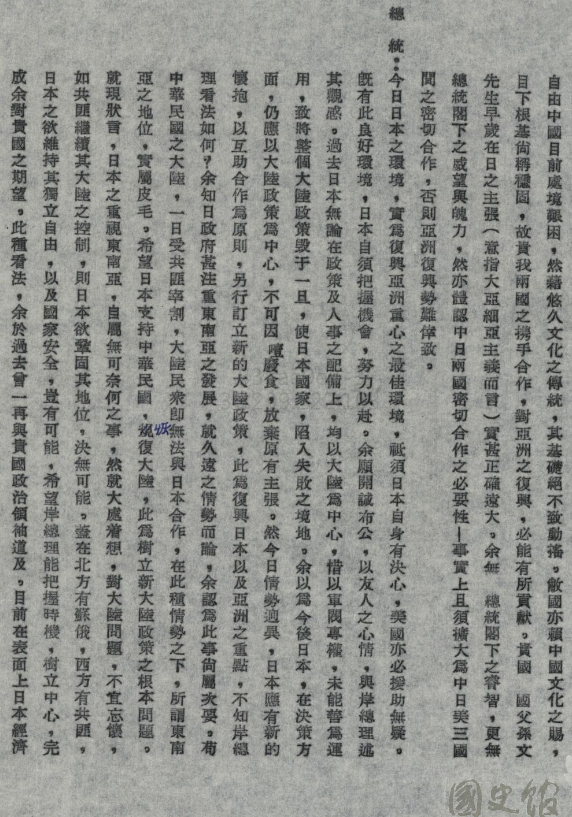 自由中國目前處境艱困，然藉悠久文化之傳統，其基礎絕不致動搖。敝國亦賴中國文化之賜，
目下根基尚稱穩固，故貴我兩國之携手合作，對亞洲之復興，必能有所貢獻。貴國　國父孫文
先生早歲在日之主張（意指大亞細亞主義而言）實甚正確遠大。余無　總統閣下之睿智，更無
總統閣下之威望與魄力，然亦證認中日兩國密切合作之必要性—事實上且須擴大爲中日美三國
間之密切合作，否則亞洲復興勢難倖致。
總　統：今日日本之環境，實爲復興亞洲重心之最佳環境，祇須日本自身有決心，美國亦必援助無疑。
既有此良好環境，日本自須把握機會，努力以赴。余願開誠布公，以友人之心情，與岸總理述
其觀感。過去日本無論在政策及人事之配備上，均以大陸爲中心，惜以軍閥專橫，未能善爲運
用，致將整個大陸政策毀于一旦，使日本國家，陷入失敗之境地。余以爲今後日本，在決策方
面，仍應以大陸政策爲中心，不可因噎廢食，放棄原有主張。然今日情勢迥異，日本應有新的
懷抱，以互助合作爲原則，另行訂立新的大陸政策，此爲復興日本以及亞洲之重點，不知岸總
理看法如何？余知日政府甚注重東南亞之發展，就久遠之情勢而論，余認爲此事尚屬次要。苟
中華民國之大陸，一日受共匪宰割，大陸民衆卽無法與日本合作，在此種情勢之下，所謂東南
亞之地位，實屬皮毛。希望日本支持中華民國，恢復大陸，此爲樹立新大陸政策之根本問題。
就現狀言，日本之重視東南亞，自屬無可奈何之事，然就大處着想，對大陸問題，不宜忘懷，
如共匪繼續其大陸之控制，則日本欲鞏固其地位，決無可能。蓋在北方有蘇俄，西方有共匪，
日本之欲維持其獨立自由，以及國家安全，豈有可能，希望岸總理能把握時機，樹立中心，完
成余對貴國之期望。此種看法，余於過去曾一再與貴國政治領袖道及。目前在表面上日本經濟
國史館